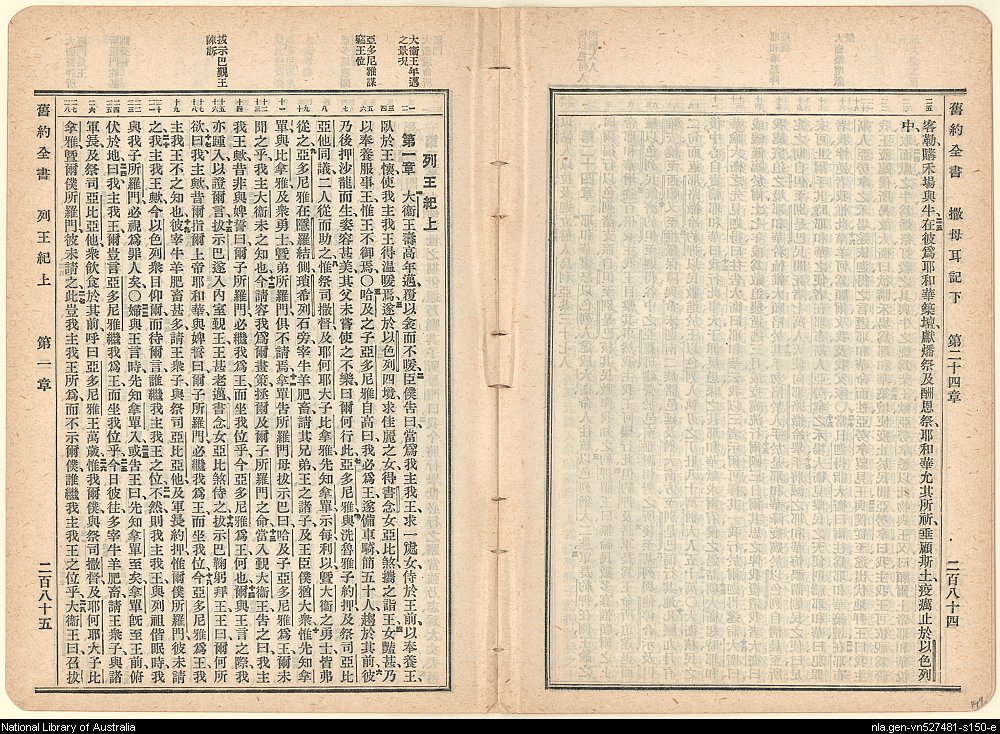 舊約全書 撒母耳記下 第二十四章 二百八十四
二五
客勒購禾場與牛在彼爲耶和華築壇獻燔祭及酬恩祭耶和華允其所祈垂顧斯土疫癘止於以色列
中
大衞王年邁
之景況
亞多尼雅謀
竊王位
拔示巴覲王
陳訴
列王紀上
第一章 大衞王壽高年邁覆以衾而不暖臣僕告曰當爲我主我王求一處女侍於王前以奉養王
臥於王懷使我主我王得溫暖焉遂於以色列四境求佳麗之女得書念女亞比煞攜之詣王女豔甚乃
以奉養服事王惟王不御焉〇哈及之子亞多尼雅自高曰我必爲王遂備車騎簡五十人趨於其前彼
乃後押沙龍而生姿容甚美其父未嘗使之不樂曰爾何行此亞多尼雅與洗魯雅子約押及祭司亞比
亞他同議二人從而助之惟祭司撒督及耶何耶大子比拿雅先知拿單示每利以暨大衞之勇士皆弗
從之亞多尼雅在隱羅結側瑣希列石旁宰牛羊肥畜請其兄弟王之諸子及王臣僕猶大衆惟先知拿
單與比拿雅及衆勇士暨弟所羅門俱不請焉拿單告所羅門母拔示巴曰哈及子亞多尼雅爲王爾未
聞之乎我主大衞未之知也今請容我爲爾畫策拯爾及爾子所羅門之命當入覲大衞王告之曰我主
我王歟昔非與婢誓曰爾子所羅門必繼我爲王而坐我位乎今亞多尼雅爲王何也爾與王言之際我
亦踵入以證爾言拔示巴遂入內室覲王王甚老邁書念女亞比煞侍之拔示巴鞠躬拜王王曰爾何所
欲曰我主歟昔爾指爾上帝耶和華與婢誓曰爾子所羅門必繼我爲王而坐我位今亞多尼雅爲王我
主我王不之知也彼宰牛羊肥畜甚多請王衆子與祭司亞比亞他及軍長約押惟爾僕所羅門彼未請
之我主我王歟今以色列衆目仰爾而待爾言誰繼我主我王之位不然則我主我王與列祖偕眠時我
與我子所羅門必視爲罪人矣〇婦與王言時先知拿單入或告王曰先知拿單至矣拿單旣至王前俯
伏於地曰我主我王爾豈言亞多尼雅繼我爲王而坐我位乎今日彼往多宰牛羊肥畜請王衆子與諸
軍長及祭司亞比亞他衆飲食於其前呼曰亞多尼雅王萬歲惟我爾僕與祭司撒督及耶何耶大子比
拿雅暨爾僕所羅門彼未請之此豈我主我王所爲而不示爾僕誰繼我主我王之位乎大衞王曰召拔
舊約全書 列王紀上 第一章 二百八十五
National Library of Australia
nla.gen-vn527481-s150-e